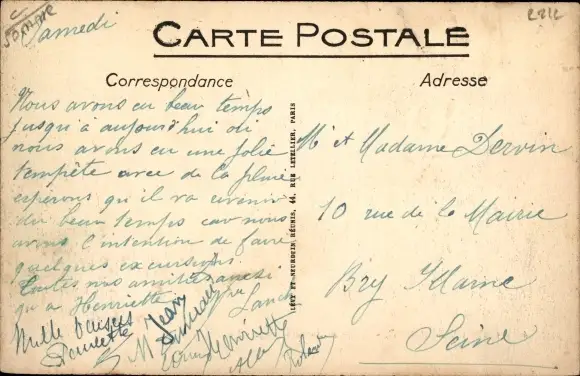 Somme
Samedi
CARTE POSTALE
Correspondance
Adresse
Nous avons eu beau temps
jusqu'à aujourd'hui où
nous avons eu une jolie
tempête avec de la pluie
esperons qu'il va revenir
du beau temps car nous
avons l'intention de faire
quelques excursions.
Toutes nos amitiés ainsi
qu'à Henriette
Mille baisers
Paulette
Jean
M
Henriette
Roland
LEVY ET NEURDEIN RÉUNIS, 44, RUE LETELLIER, PARIS
Mr et Madame Dervin
10 rue de la Mairie
Bry s/ Marne
Seine